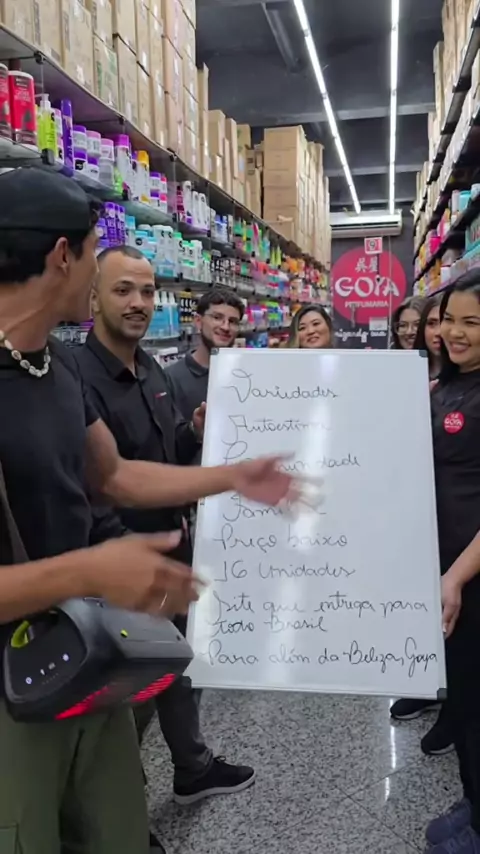 GOYA
PERFUMARIA
GOYA
Variedades
Autoestima
Família
Preço baixo
16 Unidades
Site que entrega para
todo Brasil
Para além da Beleza, Goya